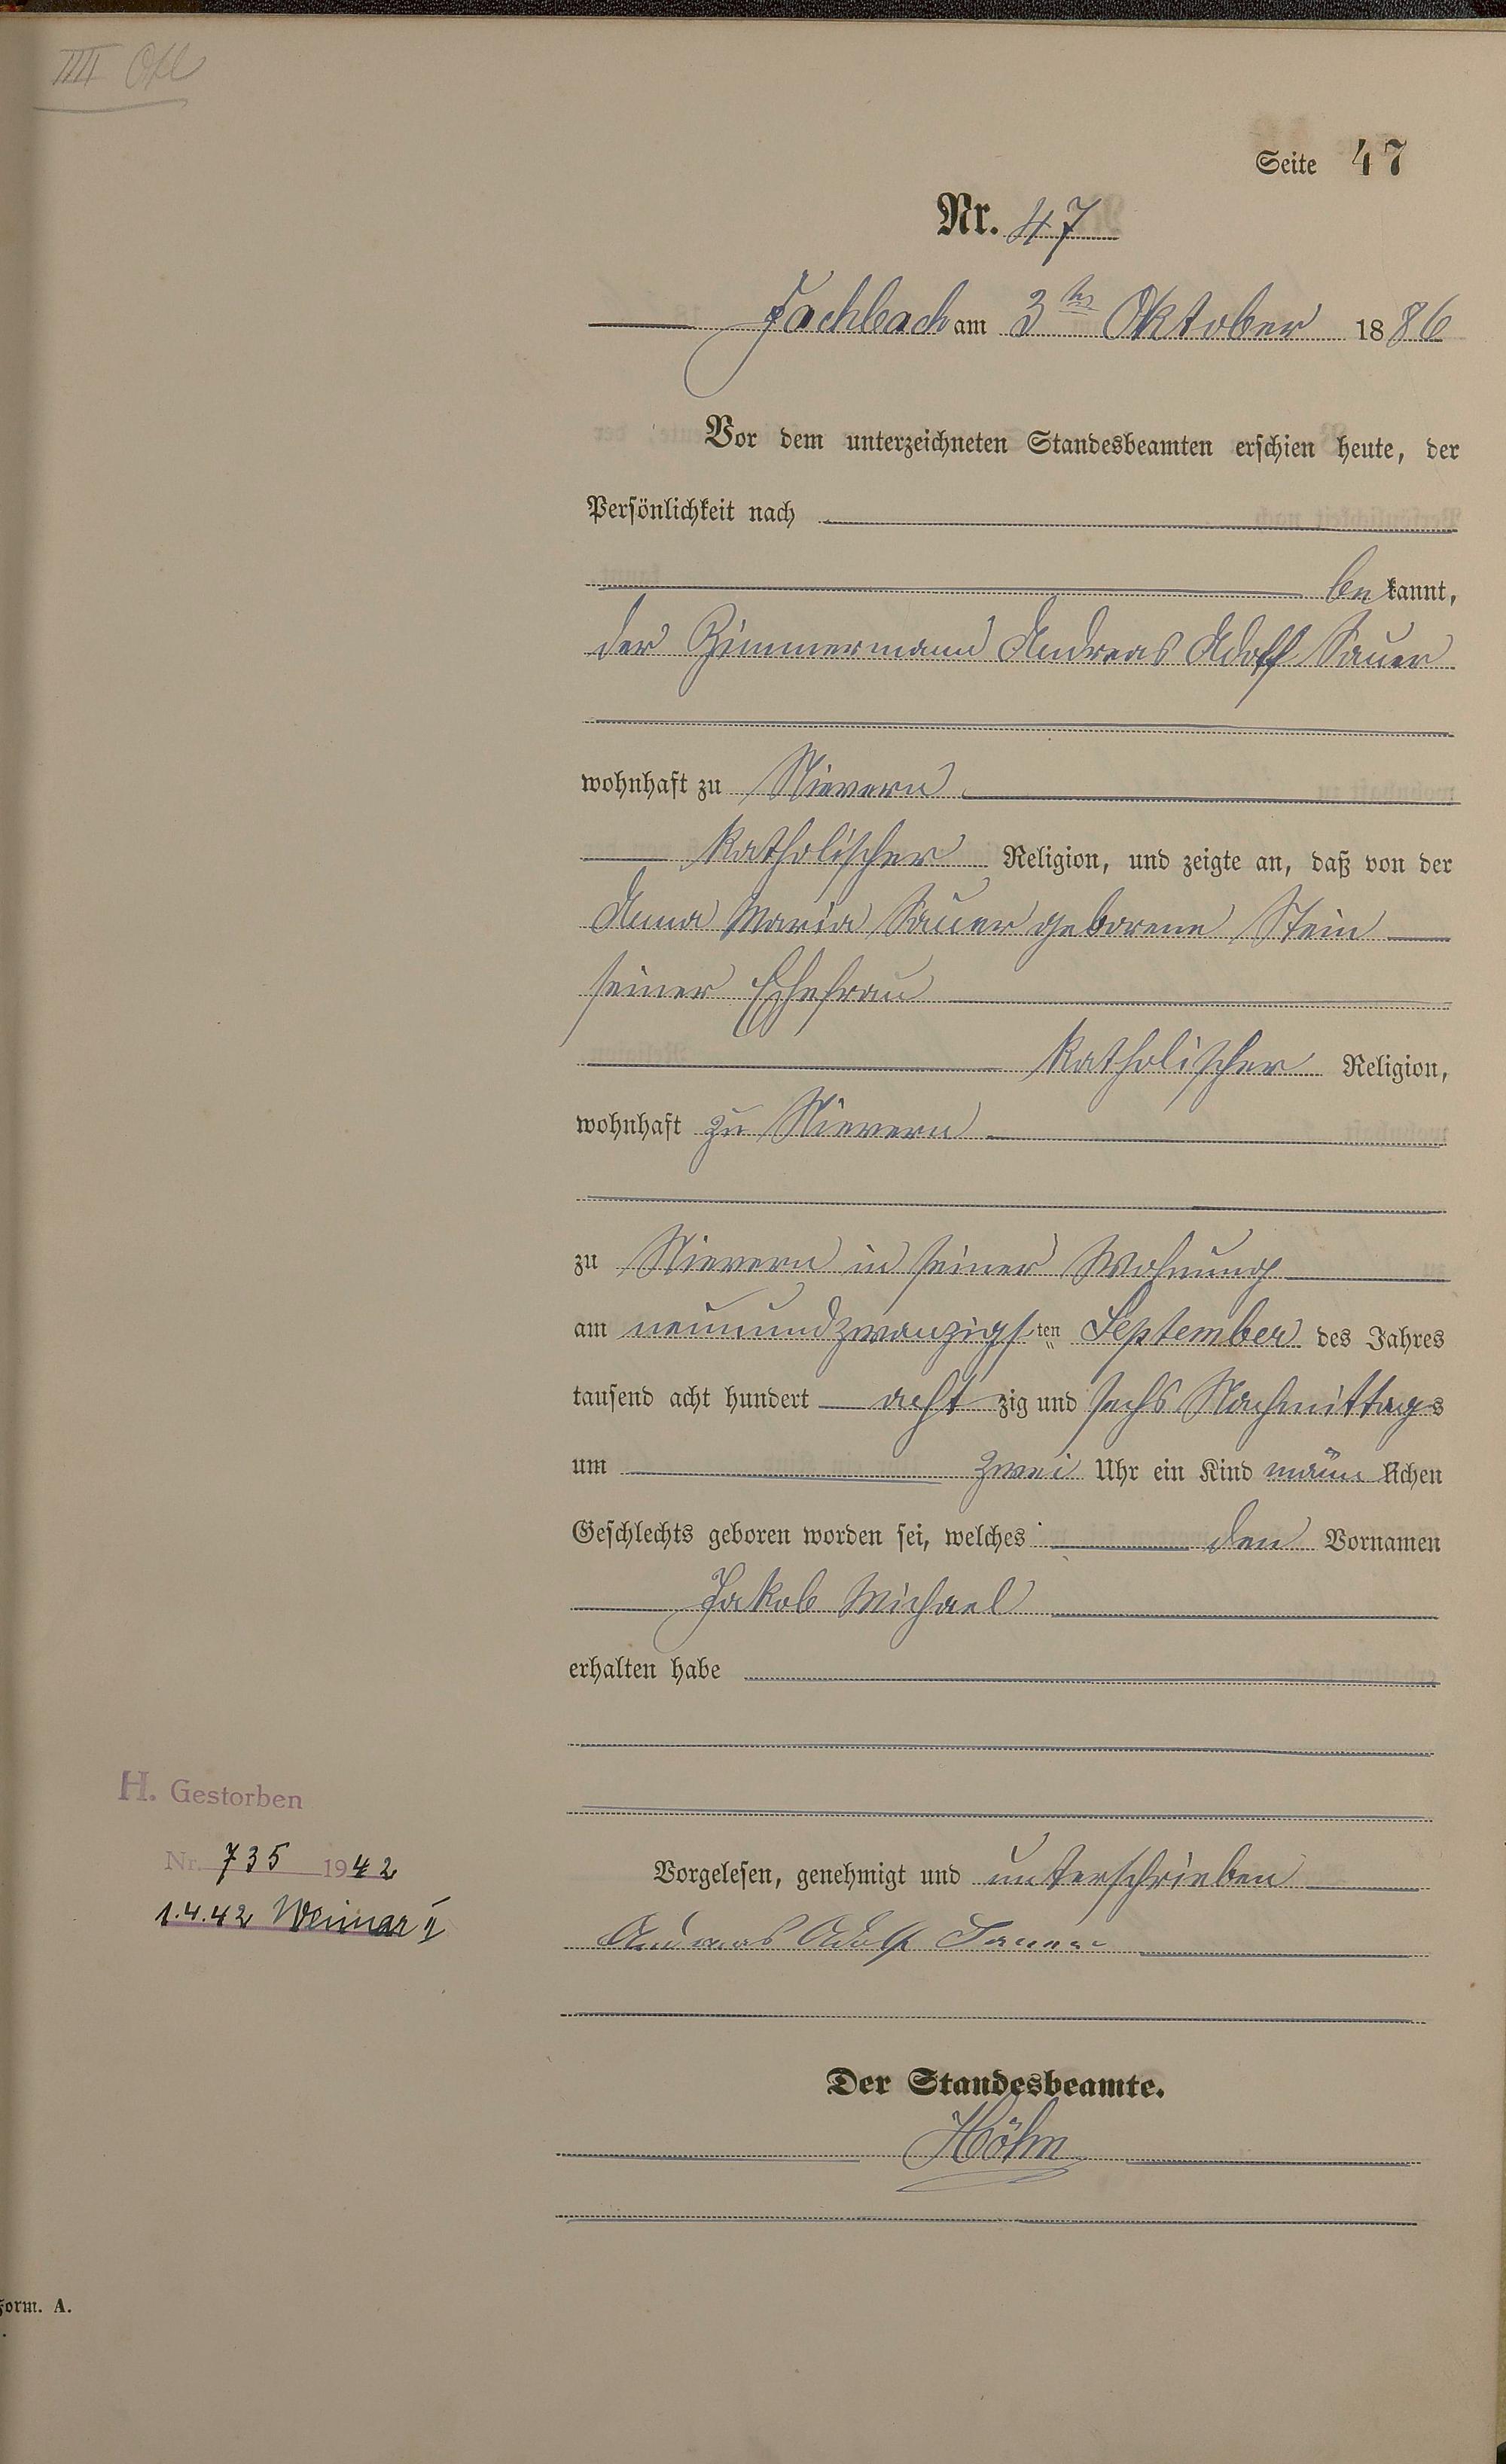 Seite 47
Nr. 47
Fachbach am 3ten Oktober 1886
Vor dem unterzeichneten Standesbeamten erschien heute, der
Persönlichkeit nach
bekannt,
der Zimmermann Andreas Adolf Sauer
wohnhaft zu Nievern
katholischer Religion, und zeigte an, daß von der
Anna Maria Sauer geborene Stein
seiner Ehefrau
katholischer Religion,
wohnhaft zu Nievern
zu Nievern in seiner Wohnung
am neunundzwanzigsten September des Jahres
tausend acht hundert achtzig und sechs Nachmittags
um zwei Uhr ein Kind männlichen
Geschlechts geboren worden sei, welches den Vornamen
Jakob Michael
erhalten habe
H. Gestorben
Nr. 735 1942
1.4.42 Weimar II
Vorgelesen, genehmigt und unterschrieben
Andreas Adolf Sauer
Der Standesbeamte.
Höhn
Form. A.